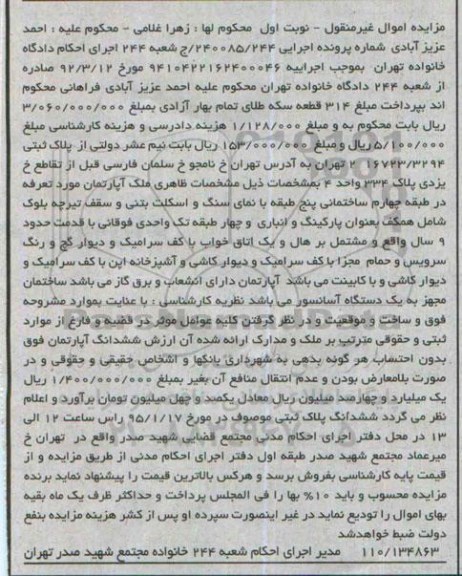 مزایده اموال غیرمنقول - نوبت اول محکوم لها : زهرا غلامی - محکوم علیه : احمد
عزیز آبادی شماره پرونده اجرایی ۲۴۰۰۸۵/۲۴۴/ج شعبه ۲۴۴ اجرای احکام دادگاه
خانواده تهران بموجب اجراییه ۹۴۱۰۴۲۲۱۶۲۴۰۰۰۴۶ مورخ ۹۲/۳/۱۲ صادره
از شعبه ۲۴۴ دادگاه خانواده تهران محکوم علیه احمد عزیز آبادی فراهانی محکوم
اند بپرداخت مبلغ ۳۱۴ قطعه سکه طلای تمام بهار آزادی بمبلغ ۳/۰۶۰/۰۰۰/۰۰۰
ریال بابت محکوم به و مبلغ ۱/۱۲۸/۰۰۰ هزینه دادرسی و هزینه کارشناسی مبلغ
۵/۱۰۰/۰۰۰ ریال و مبلغ ۱۵۳/۰۰۰/۰۰۰ ریال بابت نیم عشر دولتی از پلاک ثبتی
۱۶۷۲۳/۳۲۹۴ ۲ تهران به آدرس تهران خ نامجو خ سلمان فارسی قبل از تقاطع خ
یزدی پلاک ۳۳۴ واحد ۴ بمشخصات ذیل مشخصات ظاهری ملک آپارتمان مورد تعرفه
در طبقه چهارم ساختمانی پنج طبقه با نمای سنگ و اسکلت بتنی و سقف تیرچه بلوک
شامل همکف بعنوان پارکینگ و انباری و چهار طبقه تک واحدی فوقانی با قدمت حدود
۹ سال واقع و مشتمل بر هال و یک اتاق خواب با کف سرامیک و دیوار گچ و رنگ
سرویس و حمام مجزا با کف سرامیک و دیوار کاشی و آشپزخانه اپن با کف سرامیک و
دیوار کاشی و با کابینت می باشد آپارتمان دارای انشعاب و برق گاز می باشد ساختمان
مجهز به یک دستگاه آسانسور می باشد نظریه کارشناسی : با عنایت بموارد مشروحه
فوق و ساخت و موقعیت و در نظر گرفتن کلیه عوامل موثر در قضیه و فارغ از موارد
ثبتی و حقوقی مترتب بر ملک و مدارک ارائه شده آن ارزش ششدانگ آپارتمان فوق
بدون احتساب هر گونه بدهی به شهرداری بانکها و اشخاص حقیقی و حقوقی و در
صورت بلامعارض بودن و عدم انتقال منافع آن بغیر بمبلغ ۱/۴۰۰/۰۰۰/۰۰۰ ریال
یک میلیارد و چهارصد میلیون ریال معادل یکصد و چهل میلیون تومان برآورد و اعلام
نظر می گردد ششدانگ پلاک ثبتی موصوف در مورخ ۹۵/۱/۱۷ راس ساعت ۱۲ الی
۱۳ در محل دفتر اجرای احکام مدنی مجتمع قضایی شهید صدر واقع در تهران خ
میرعماد مجتمع شهید صدر طبقه اول دفتر اجرای احکام مدنی از طریق مزایده و از
قیمت پایه کارشناسی بفروش برسد و هرکس بالاترین قیمت را پیشنهاد نماید برنده
مزایده محسوب و باید ۱۰% بها را فی المجلس پرداخت و حداکثر ظرف یک ماه بقیه
بهای اموال را تودیع نماید در غیر اینصورت سپرده او پس از کشر هزینه مزایده بنفع
دولت ضبط خواهدشد
۱۱۰/۱۳۴۸۶۳ مدیر اجرای احکام شعبه ۲۴۴ خانواده مجتمع شهید صدر تهران